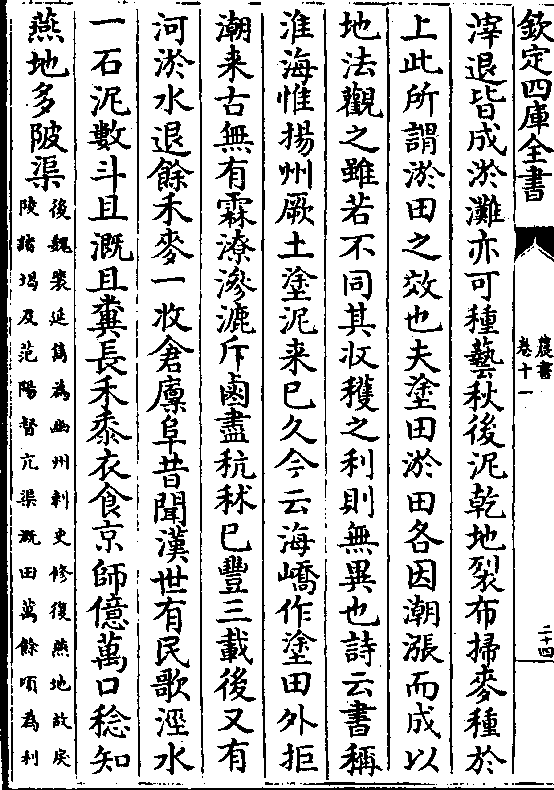 欽定四庫全書
農書
卷十一
二十四
滓退皆成淤灘亦可種藝秋後泥乾地裂布掃麥種於
上此所謂淤田之效也夫塗田淤田各因潮漲而成以
地法觀之雖若不同其收穫之利則無異也詩云書稱
淮海惟揚州厥土塗泥来已久今云海嶠作塗田外拒
潮来古無有霖潦滲漉斥鹵盡秔秫已豐三載後又有
河淤水退餘禾麥一收倉廪阜昔聞漢世有民歌涇水
一石泥數斗且溉且糞長禾黍衣食京師億萬口稔知
燕地多陂渠
後魏裴延儁為幽州刺史修復燕地故戾
陵諸堨及范陽督亢渠溉田萬餘頃為利